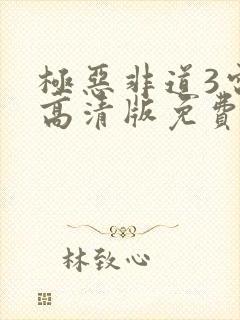 極惡非道3
高清版免費
林致心